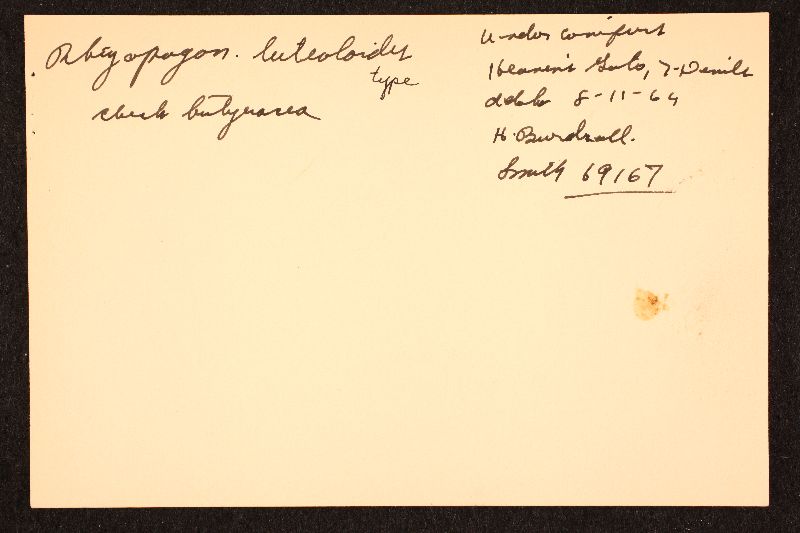 Rhizopogon. luteoloides
type
check butyracea
Under conifers
Heaven's Gate, 7-Devils
Idaho 8-11-64
H. Burdsall.
Smith 69167